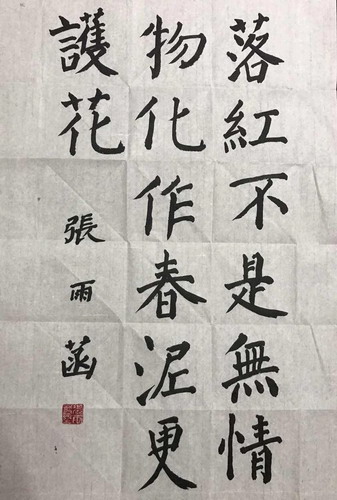 落紅不是無情
物化作春泥更
護花
張雨菡